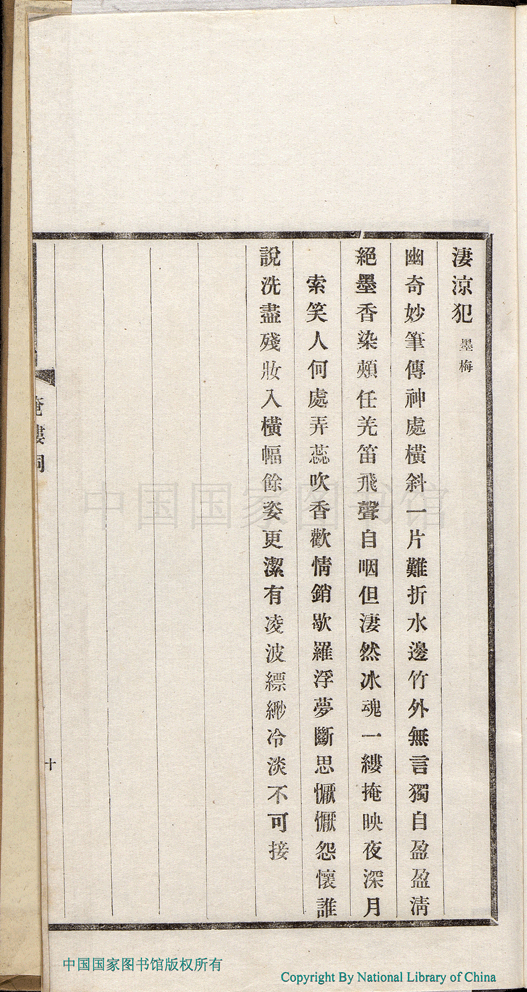 淒涼犯 墨梅
幽奇妙筆傳神處橫斜一片難折水邊竹外無言獨自盈盈淸
絕墨香染頰任羌笛飛聲自咽但淒然冰魂一縷掩映夜深月
索笑人何處弄蕊吹香歡情銷歇羅浮夢斷思懨懨怨懷誰
說洗盡殘妝入橫幅餘姿更潔有凌波縹緲冷淡不可接
十
中国国家图书馆
中国国家图书馆版权所有
Copyright By National Library of China